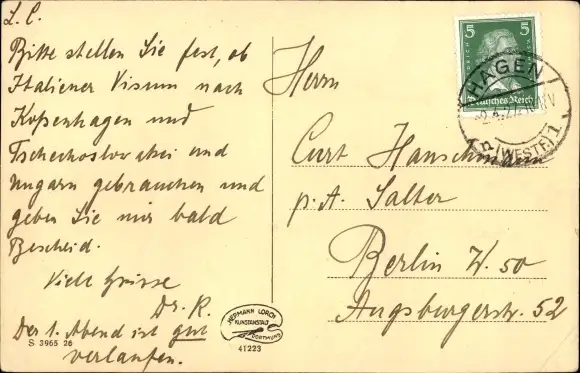 L. C.
Bitte stellen Sie fest, ob
Italiener Visum nach
Kopenhagen und
Tschechoslovakei und
Ungarn gebrauchen und
geben Sie mir bald
Bescheid.
Viele Grüsse
Dr. R.
Der 1. Abend ist gut
verlaufen.
S 3965 26
HERMANN LORCH
KUNSTANSTALT
DORTMUND
41223
5 5
Deutsches Reich
HAGEN
n (WESTF) 1
Herrn
Curt Hanschmann
p. A. Salter
Berlin W. 50
Augsburgerstr. 52